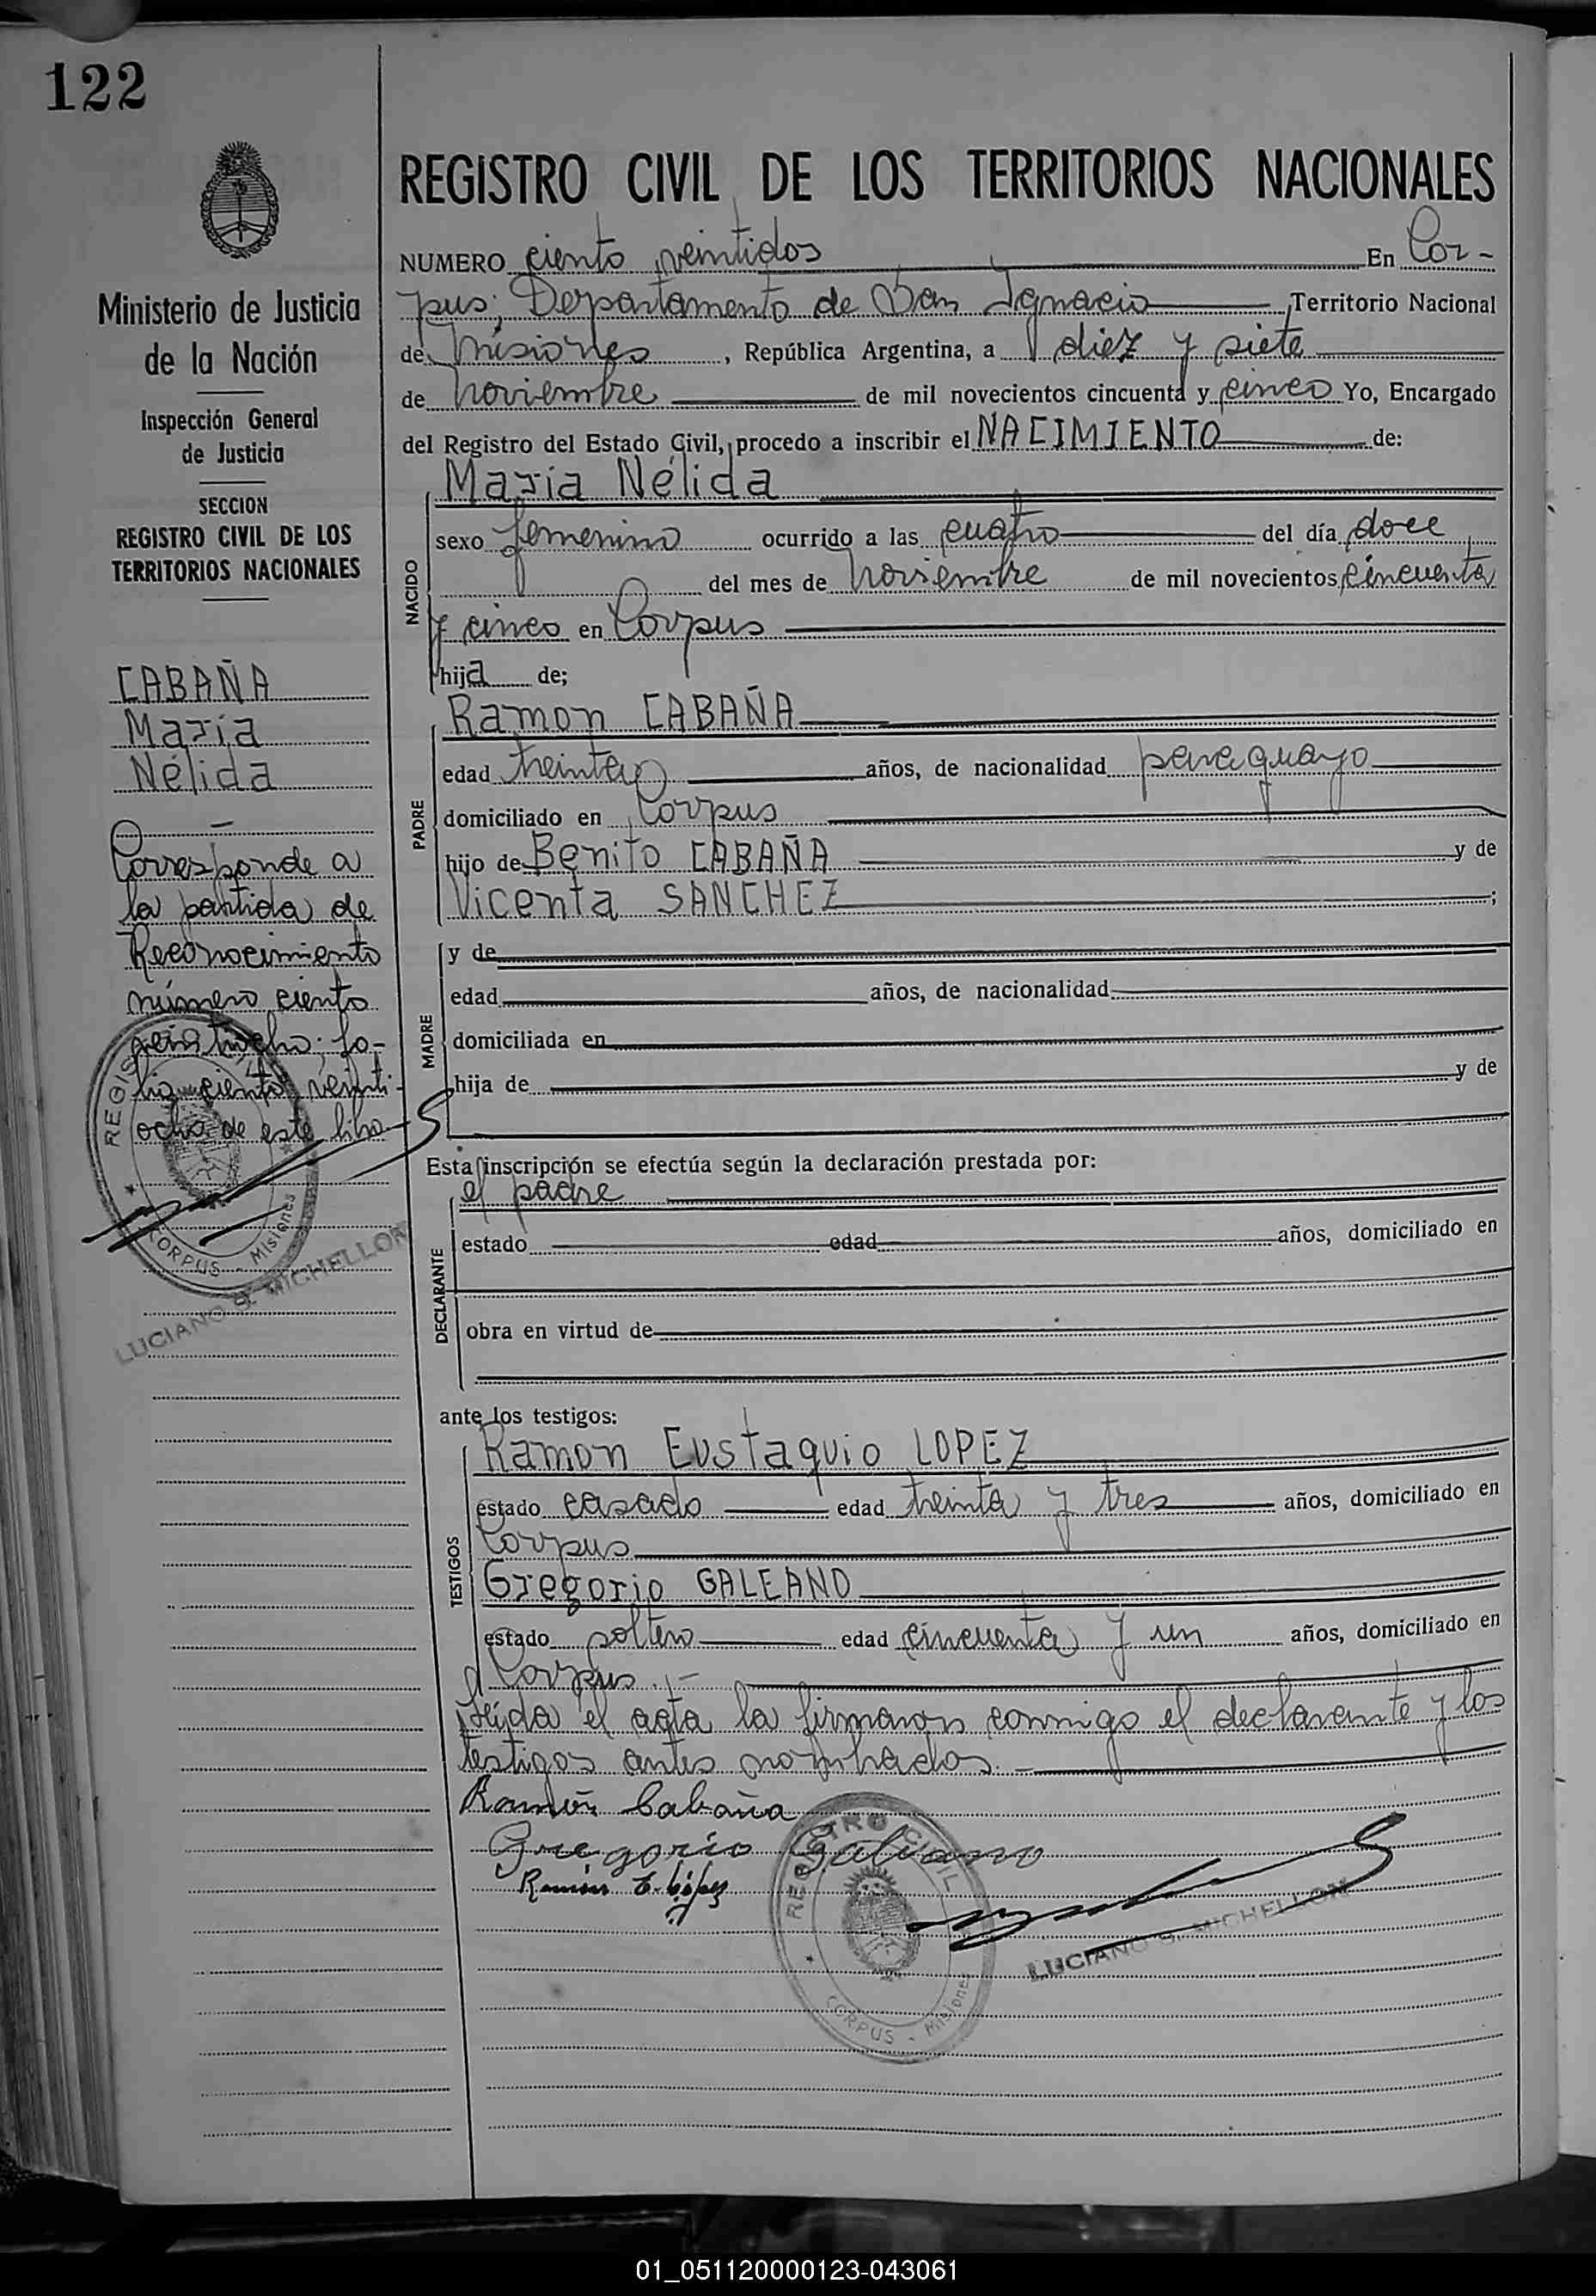 122
Ministerio de Justicia
de la Nación
Inspección General
de Justicia
SECCION
REGISTRO CIVIL DE LOS
TERRITORIOS NACIONALES
CABAÑA
María
Nélida
Corresponde a
la partida de
Reconocimiento
número ciento
veintiocho; fo-
lio ciento veinti-
ocho de este libro
REGISTRO
CORPUS - Misiones
LUCIANO S. MICHELLON
REGISTRO CIVIL DE LOS TERRITORIOS NACIONALES
NUMERO ciento veintidos En Cor-
pus; Departamento de San Ignacio, Territorio Nacional
de Misiones, República Argentina, a diez y siete
de noviembre de mil novecientos cincuenta y cinco Yo, Encargado
del Registro del Estado Civil, procedo a inscribir el NACIMIENTO de:
NACIDO
María Nélida
sexo femenino ocurrido a las cuatro del día doce
del mes de noviembre de mil novecientos cincuenta
y cinco en Corpus
hija de;
PADRE
Ramon CABAÑA
edad treinta años, de nacionalidad paraguayo
domiciliado en Corpus
hijo de Benito CABAÑA y de
Vicenta SANCHEZ;
MADRE
y de
edad años, de nacionalidad
domiciliada en
hija de y de
Esta inscripción se efectúa según la declaración prestada por:
DECLARANTE
el padre
estado edad años, domiciliado en
obra en virtud de
ante los testigos:
TESTIGOS
Ramon Eustaquio LOPEZ
estado casado edad treinta y tres años, domiciliado en
Corpus
Gregorio GALEANO
estado soltero edad cincuenta y un años, domiciliado en
Corpus.-
Leída el acta la firmaron conmigo el declarante y los
testigos antes nombrados.-
Ramón Cabaña
Gregorio Galeano
Ramón E. López
REGISTRO CIVIL
CORPUS - Misiones
LUCIANO S. MICHELLON
01_051120000123-043061